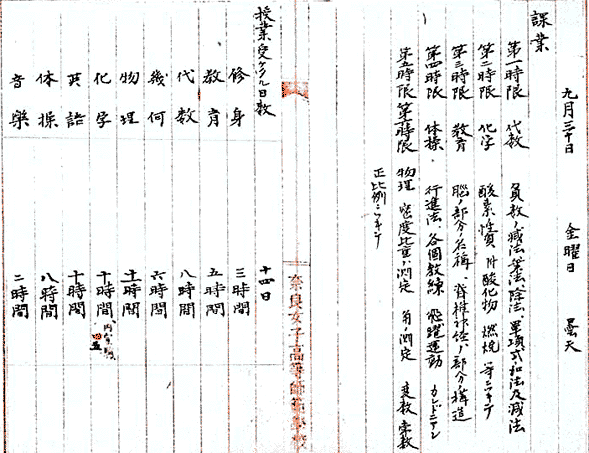 九月三十日 金曜日 曇天
課業
第一時限 代数 負数ノ減法、乗法、除法、単項式和法及減法
第二時限 化学 酸素性質、附酸化物 燃焼 等ニツキテ
第三時限 教育 脳ノ部分ノ名称、脊椎神経ノ部分ノ構造
第四時限 体操 行進法、各個教練 飛躍運動 カレドニアン
第五時限 第六時限 物理 密度比重ノ測定 角ノ測定 変数 常数
正比例ニツキテ
奈良女子高等師範学校
授業受ケタル日数 十四日
修身 三時間
教育 五時間
代数 八時間
幾何 六時間
物理 十一時間
化学 十時間
英語 十時間
体操 八時間
音楽 二時間